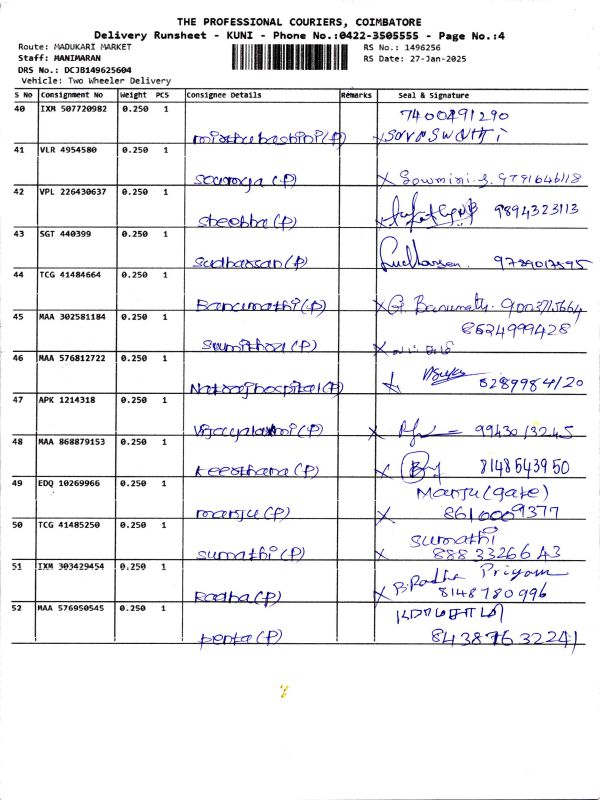 THE PROFESSIONAL COURIERS, COIMBATORE
Delivery Runsheet - KUNI - Phone No.:0422-3505555 - Page No.:4
Route: MADUKARI MARKET RS No.: 1496256
Staff: MANIMARAN RS Date: 27-Jan-2025
DRS No.: DCJB149625604
Vehicle: Two Wheeler Delivery
S No Consignment No Weight PCS Consignee Details Remarks Seal & Signature
40 IXM 507720982 0.250 1 7400491290
41 VLR 4954580 0.250 1
sowmya (P) X Sowmini. S. 9791646118
42 VPL 226430637 0.250 1
shobha (P) 9894323113
43 SGT 440399 0.250 1
Sudharsan (P) Sudharsan.
44 TCG 41484664 0.250 1
Banumathi (P) X G. Banumathi
45 MAA 302581184 0.250 1 8524999428
Sumithra (P) X
46 MAA 576812722 0.250 1
Natraj hospital (P) 8289984120
47 APK 1214318 0.250 1
Vijayalaxmi (P) X 9943013245
48 MAA 868879153 0.250 1
keerthana (P) X 8148543950
49 EDQ 10269966 0.250 1 Manju (gate)
manju (P) X 8610009377
50 TCG 41485250 0.250 1 Sumathi
sumathi (P) X 8883326643
51 IXM 303429454 0.250 1 B. Radha Priyam
Radha (P) X 8148780996
52 MAA 576950545 0.250 1
penta (P) 8438763224